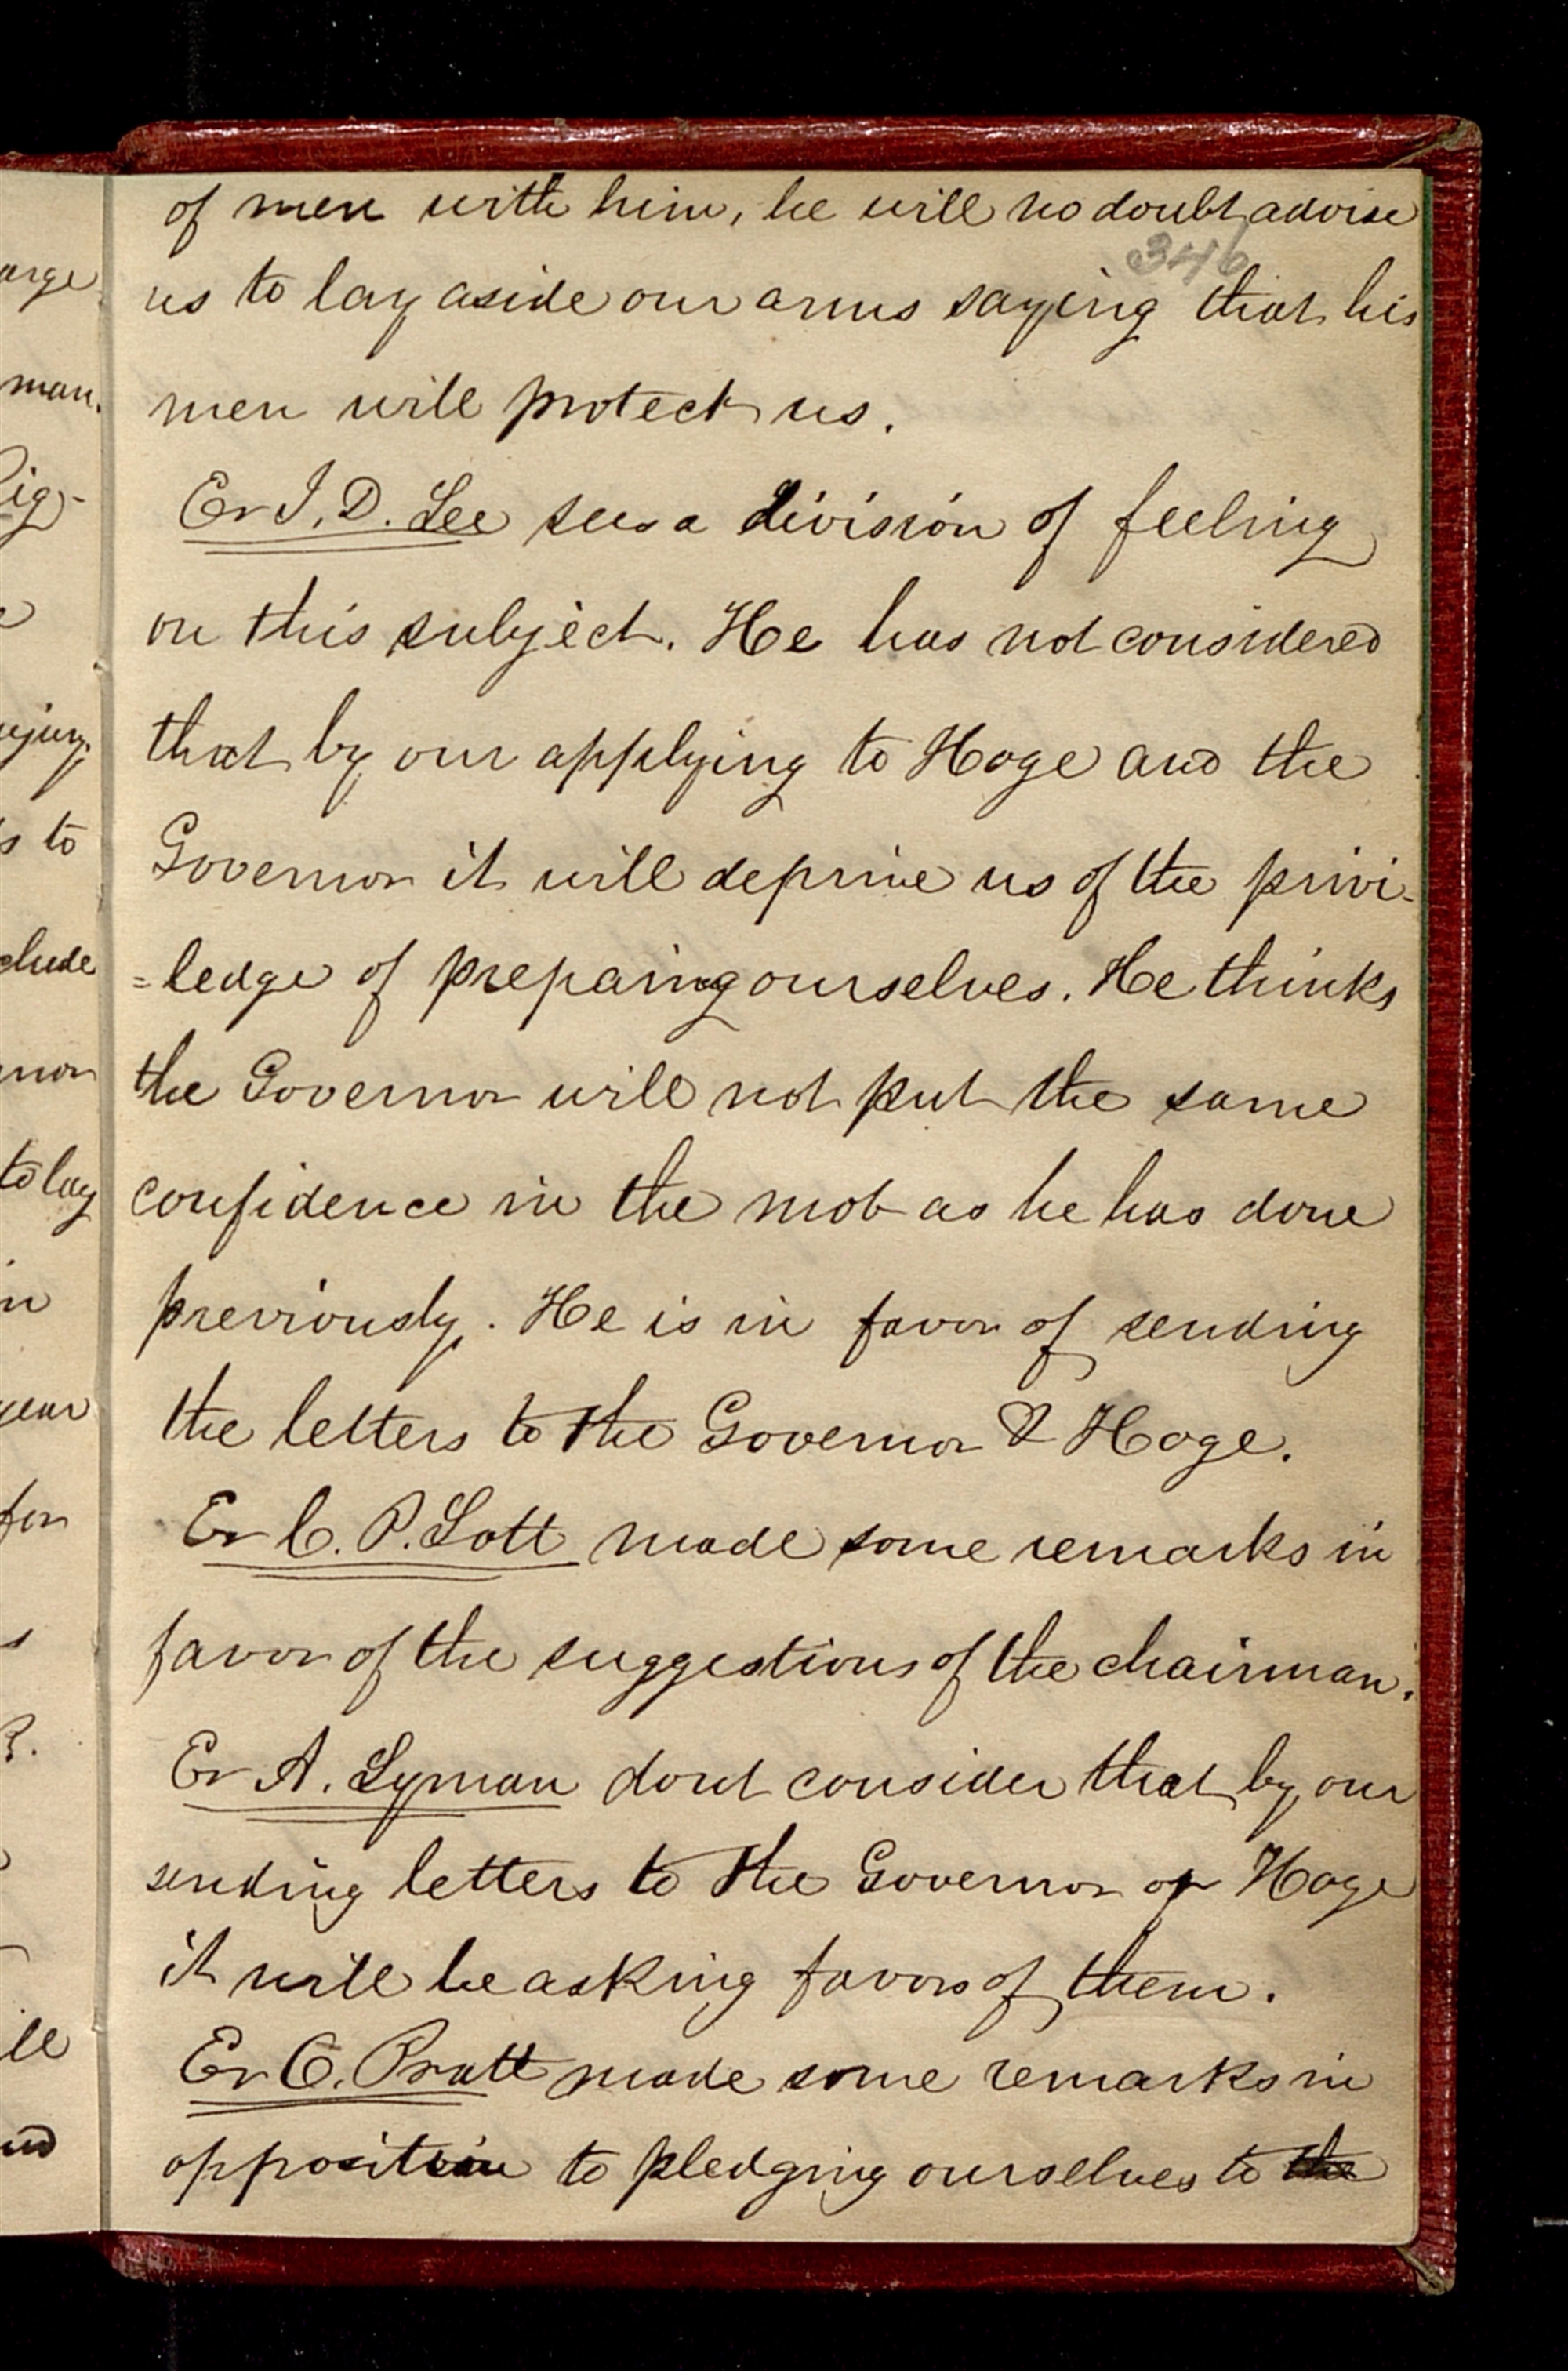 of men with him, he will no doubt advise
346
us to lay aside our arms saying that his
men will protect us.
Er J. D. Lee sees a division of feeling
on this subject. He has not considered
that by our applying to Hoge and the
Governor it will deprive us of the privi-
=ledge of preparing ourselves. He thinks
the Governor will not put the same
confidence in the mob as he has done
previously. He is in favor of sending
the letters to the Governor & Hoge.
Er C. P. Lott made some remarks in
favor of the suggestions of the chairman.
Er A. Lyman dont consider that by our
sending letters to the Governor or Hoge
it will be asking favors of them.
Er O. Pratt made some remarks in
opposition to pledging ourselves to the
arge
man.
Rig-
e
njury
s to
clude
rnor
to lay
in
year
for
s
P.
ill